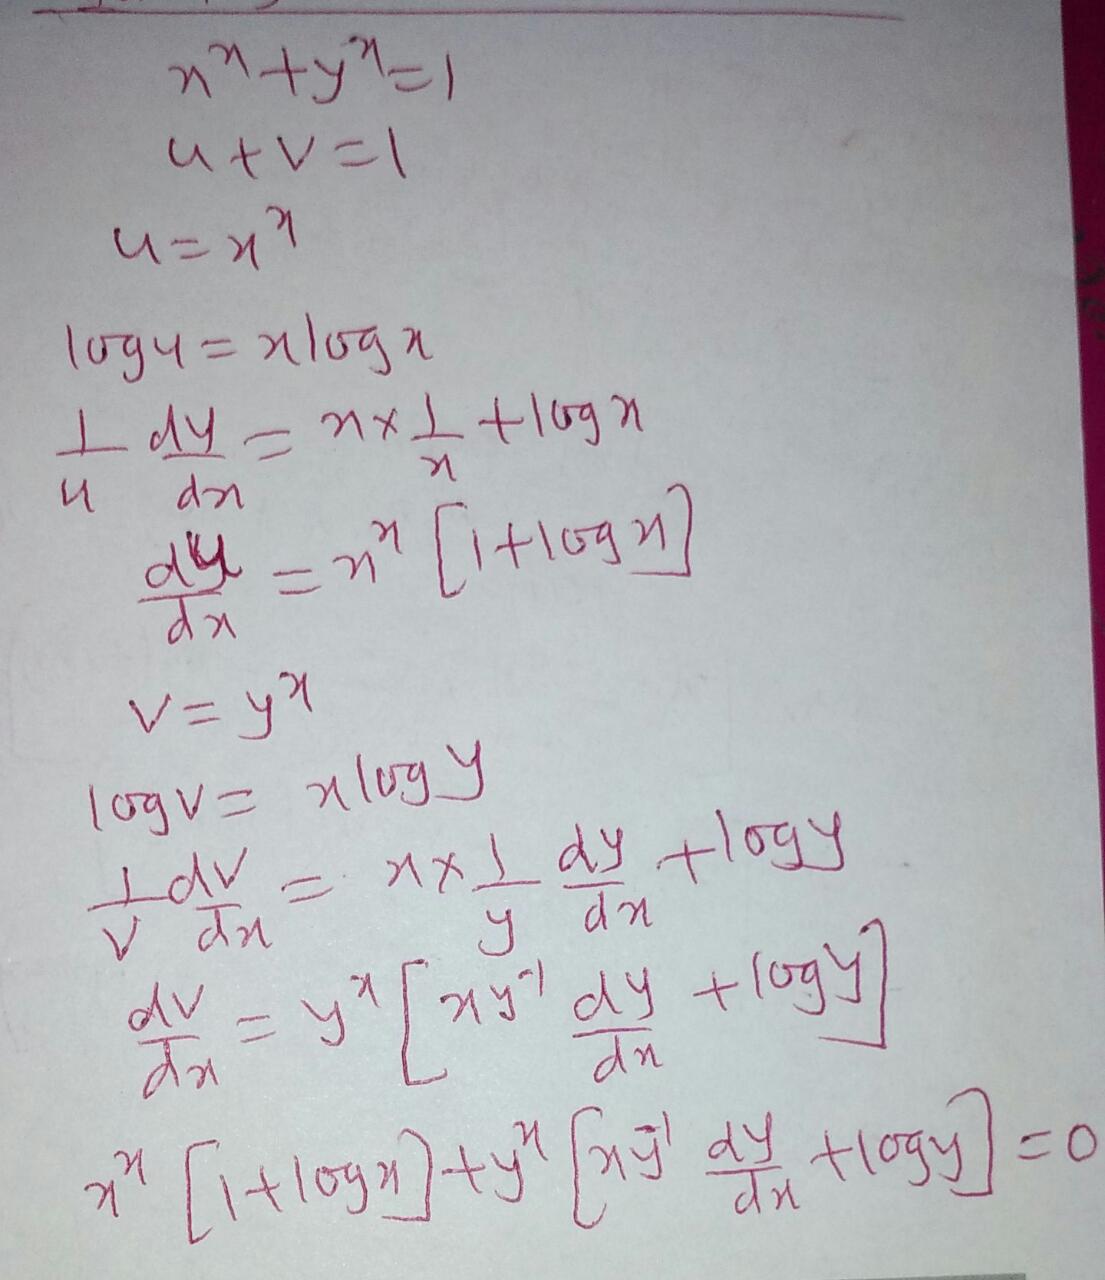 x^x + y^x = 1
u + v = 1
u = x^x
log u = x log x
1/u dy/dx = x × 1/x + log x
du/dx = x^x [1 + log x]
v = y^x
log v = x log y
1/v dv/dx = x × 1/y dy/dx + log y
dv/dx = y^x [xy^-1 dy/dx + log y]
x^x [1 + log x] + y^x [xy^-1 dy/dx + log y] = 0